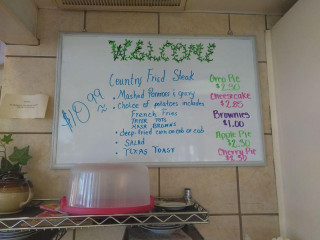 WELCOME
Country Fried Steak
$10.99
• Mashed Potatoes & gravy
• Choice of potatoes includes
French Fries
Tater Tots
Hash Browns
• deep-fried corn on cob or cob
• Salad
• Texas Toast
Oreo Pie
$2.50
Cheesecake
$2.85
Brownies
$1.00
Apple Pie
$2.50
Cherry Pie
$2.50